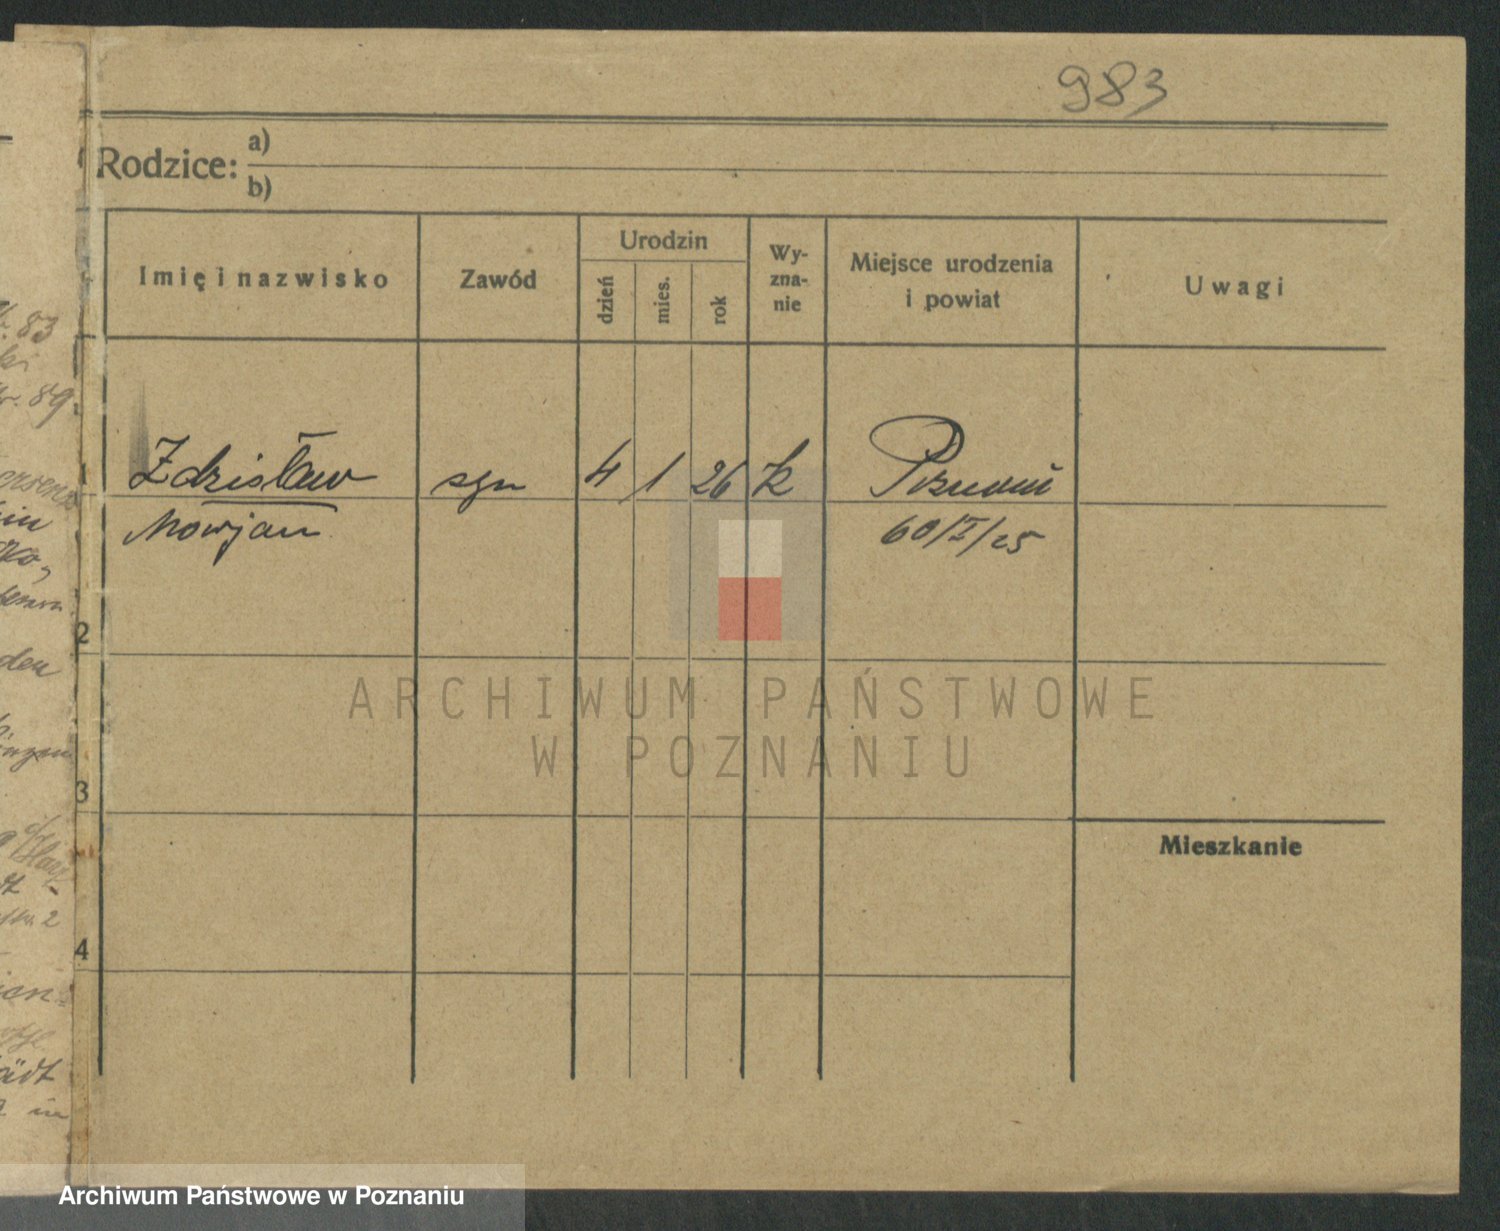 983
Rodzice: a)
b)
Imię i nazwisko
Zawód
Urodzin
dzień
mies.
rok
Wy-
zna-
nie
Miejsce urodzenia
i powiat
Uwagi
1 Zdzisław syn 4 1 26 k Poznań
Marjan 60/I/25
2
3
4
Mieszkanie
r. 83
ki
r. 89
den
str. 2
ARCHIWUM PAŃSTWOWE
W POZNANIU
Archiwum Państwowe w Poznaniu